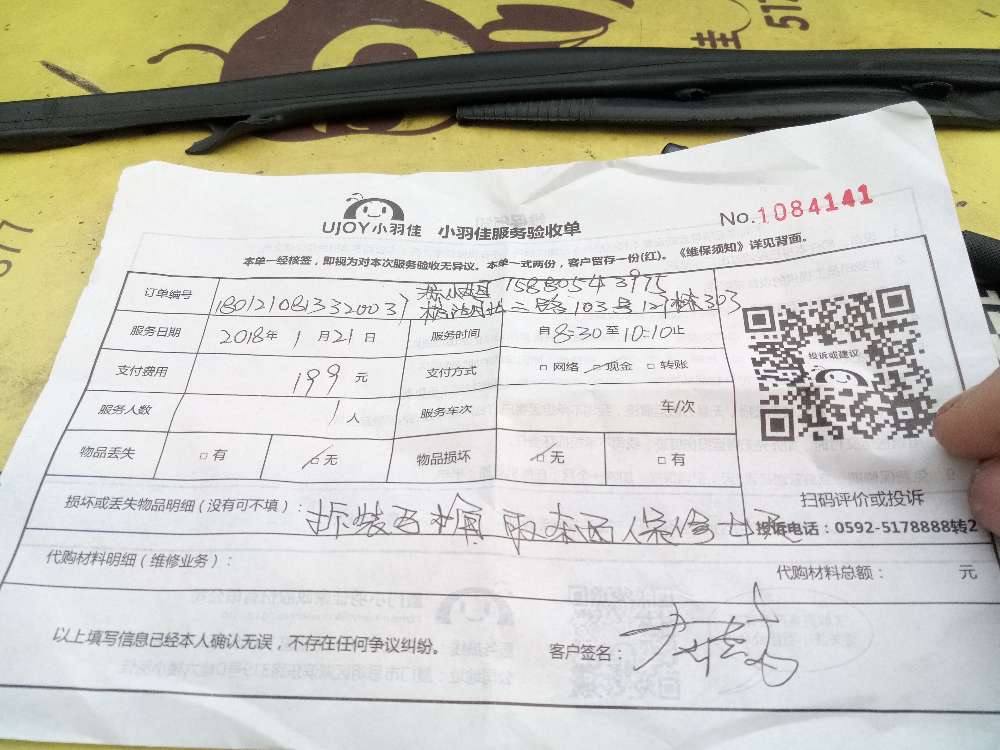 517
佳
517
UJOY小羽佳 小羽佳服务验收单
No.1084141
本单一经核签，即视为对本次服务验收无异议。本单一式两份，客户留存一份(红)。《维保须知》详见背面。
订单编号
小姐
二路103号129栋303
服务日期 2018年1月21日 服务时间 自8:30至10:10止
支付费用 199元 支付方式 □网络 □现金 □转账
服务人数 1人 服务车次 车/次
物品丢失 □有 □无 物品损坏 □无 □有
投诉或建议
扫码评价或投诉
投诉电话：0592-5178888转2
损坏或丢失物品明细（没有可不填）： 拆装 保修
代购材料明细（维修业务）：
代购材料总额： 元
以上填写信息已经本人确认无误，不存在任何争议纠纷。
客户签名：